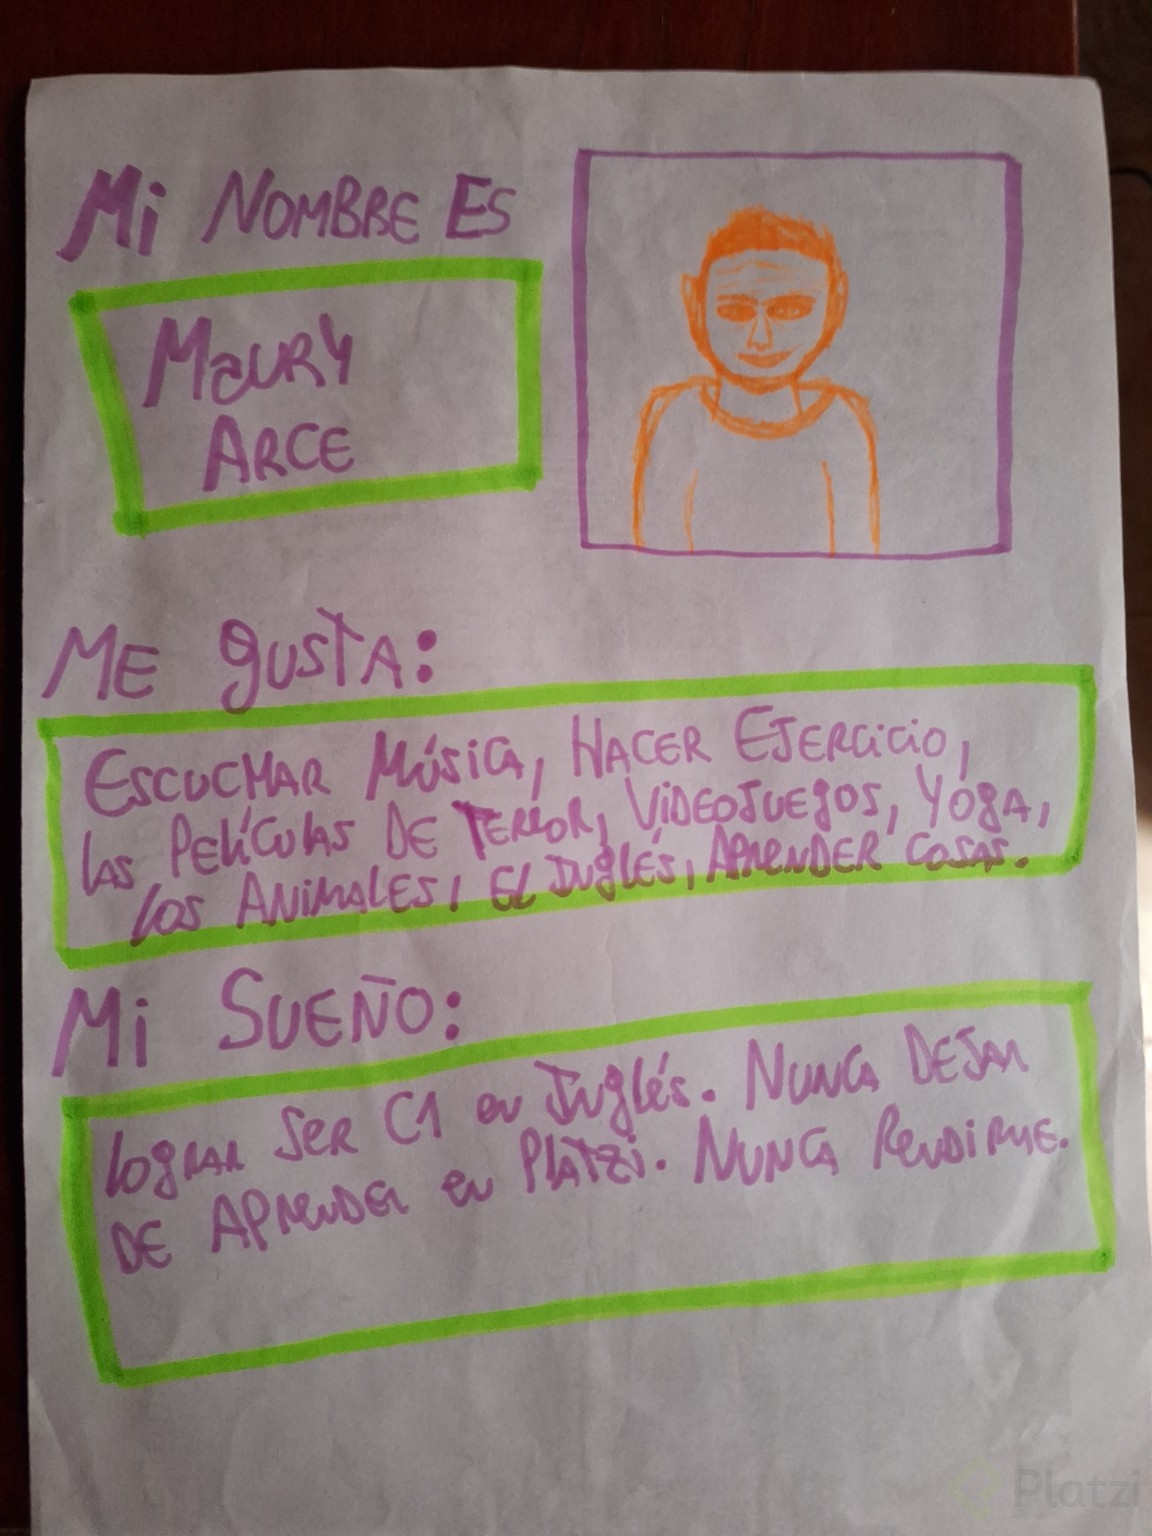 Mi NOMBRE ES
MauRY
ARCE
ME gUSTA:
ESCUCHAR MúsiCA, HACER EJERCiCio,
LAS PELíCULAS DE TERROR, ViDEOJUEgOS, YOgA,
LOS ANiMALES, EL INglÉS, APRENDER COSAS.
Mi SUEÑO:
LOgRAR SER C1 en INglés. NUNCA DEJAR
DE APRENDER en PLATZi. NUNCA RENDiRME.
Platzi